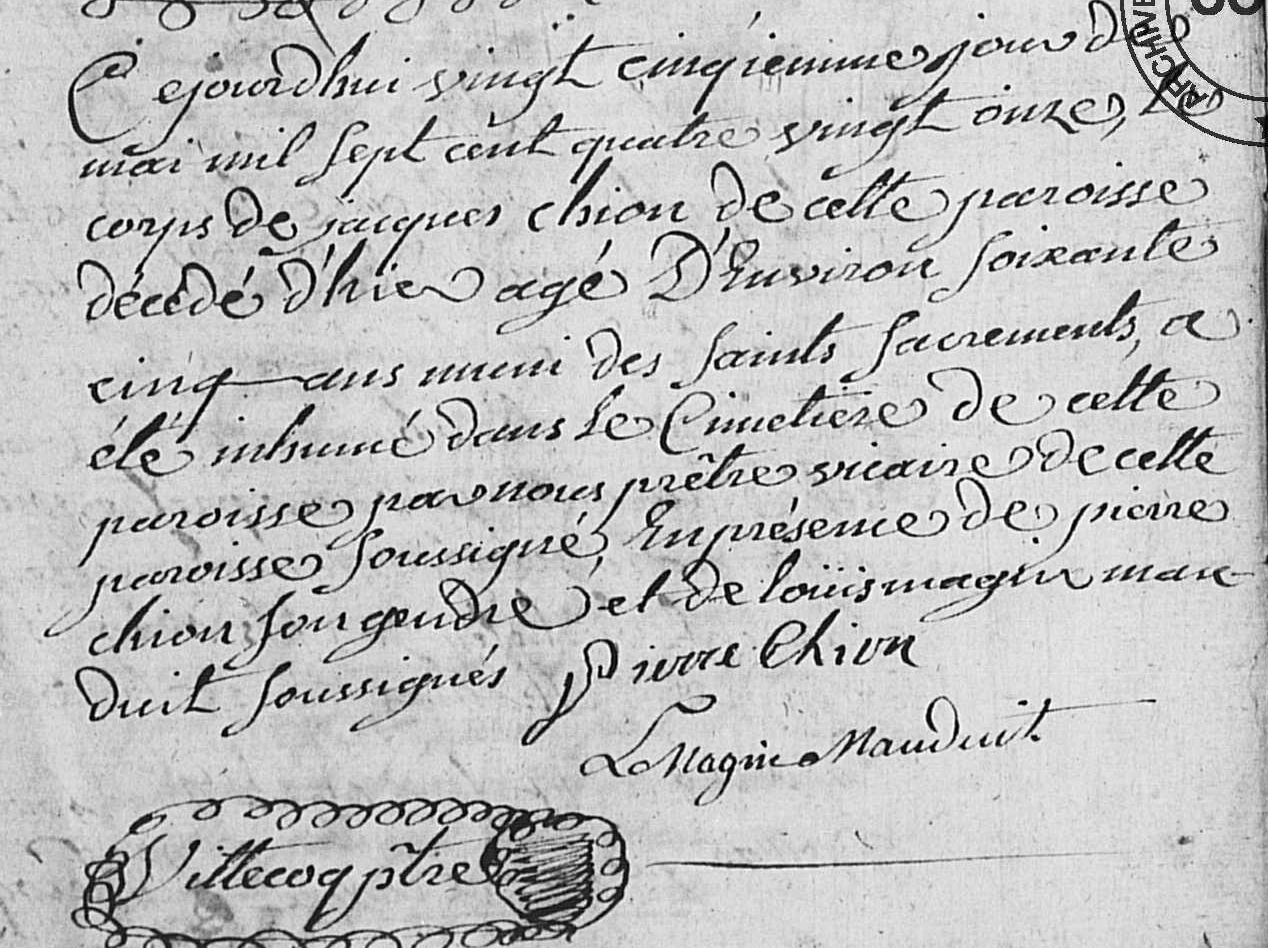 Cejourdhui vingt cinqiemme jour de
mai mil sept cent quatre vingt onze, le
corps de jacques chion de cette paroisse
décédé d'hier agé D'Environ soixante
cinq ans muni des saints sacrements, a
été inhumé dans le Cimetiere de cette
paroisse par nous prêtre vicaire de cette
paroisse soussigné, En présence de pierre
chion son gendre et de loüis magin man
duit soussignés Pierre Chion
L Magin Manduit
Vittecoq ptre
ARCHIVE